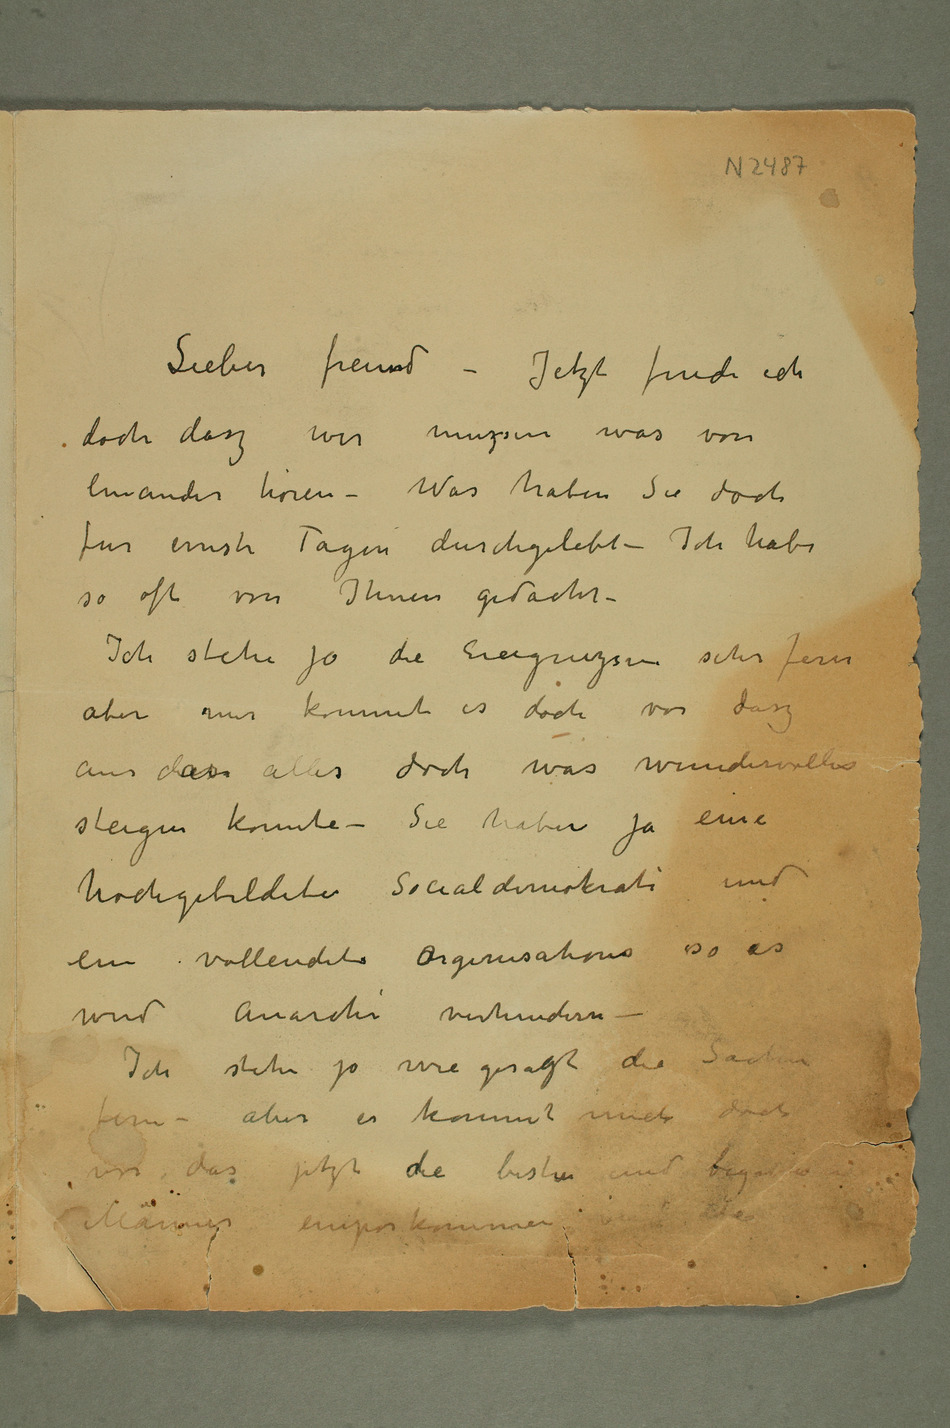 N 2487
Lieber freund – Jetzt finde ich
doch dasz wir muzsen was von
einander hören – Was haben Sie doch
fur ernste Tagen durchgelebt – Ich habe
so oft von Ihnen gedacht –
Ich stehe ja die Ereignizsen sehr fern
aber mir kommt es doch vor dasz
aus das alles doch was wundervolles
steigen konnte – Sie haben ja eine
hochgebildete Socialdemokrati und
ein vollendete Organisations so es
wird Anarchi verhindern –
Ich stehe ja wie gesagt die Sachen
fern – aber es kommt mich doch
vor das jetzt die besten und begabten
Männer emporkommen